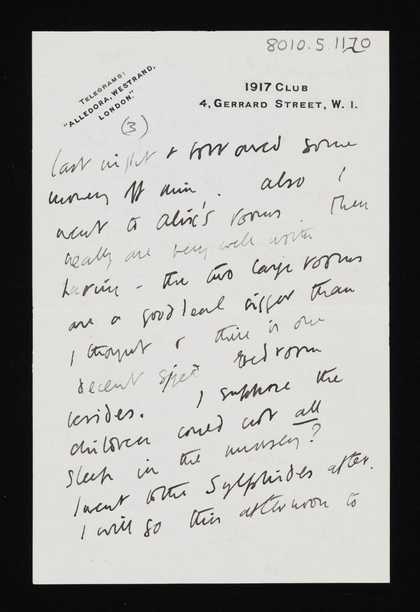 8010.5 1170
TELEGRAMS:
"ALLEDORA, WESTRAND,
LONDON."
1917 CLUB
4, GERRARD STREET, W. 1.
(3)
last night & borrowed some
money off him. also I
went to Alix's rooms. They
really are very well worth
having – the two large rooms
are a good deal bigger than
I thought & there is one
decent sized bedroom
besides. I suppose the
children could not all
sleep in the nursery?
I went to the Sylphides after.
I will go this afternoon to